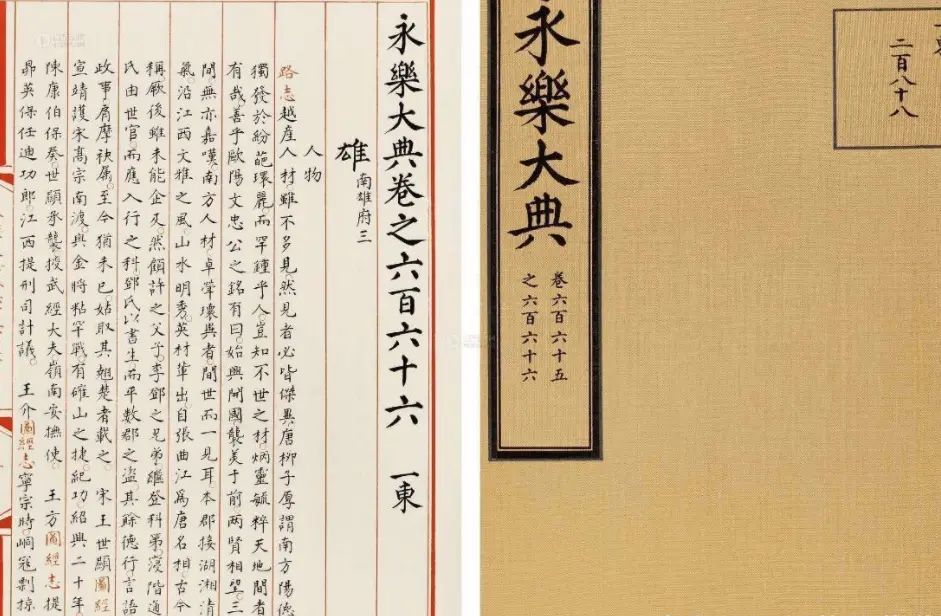 永樂大典卷之六百六十六 一東
雄 南雄府三
人物
路志越產人材雖不多見然見者必皆傑異唐柳子厚謂南方陽德
獨發於紛葩環麗而罕鍾乎人豈知不世之材炳靈毓粹天地間者
有哉善乎歐陽文忠公之銘有曰始興開國襲美于前兩賢相望三
間無亦嘉嘆南方人材卓犖瓌異者間世而一見耳本郡接湖湘清
氣沿江西文雅之風山水明秀英材輩出自張曲江爲唐名相古今
稱厥後雖未能企及然顧許之父子李鄧之兄弟繼登科第寖階通
氏由世官而應入行之科鄧氏以書生而平數郡之盜其餘德行言語
政事肩摩袂屬至今猶未已姑取其翹楚者載之 宋王世顯圖經
宣靖護宋高宗南渡與金將粘罕戰有確山之捷紀功紹興二十年
陳康伯保癸世顯承襲授武經大夫嶺南安撫使 王方圖經志提
鼎英保任迪功郎江西提刑司計議 王介圖經志寧宗時峒寇剽掠
二百八十八
永樂大典
卷六百六十五
之六百六十六